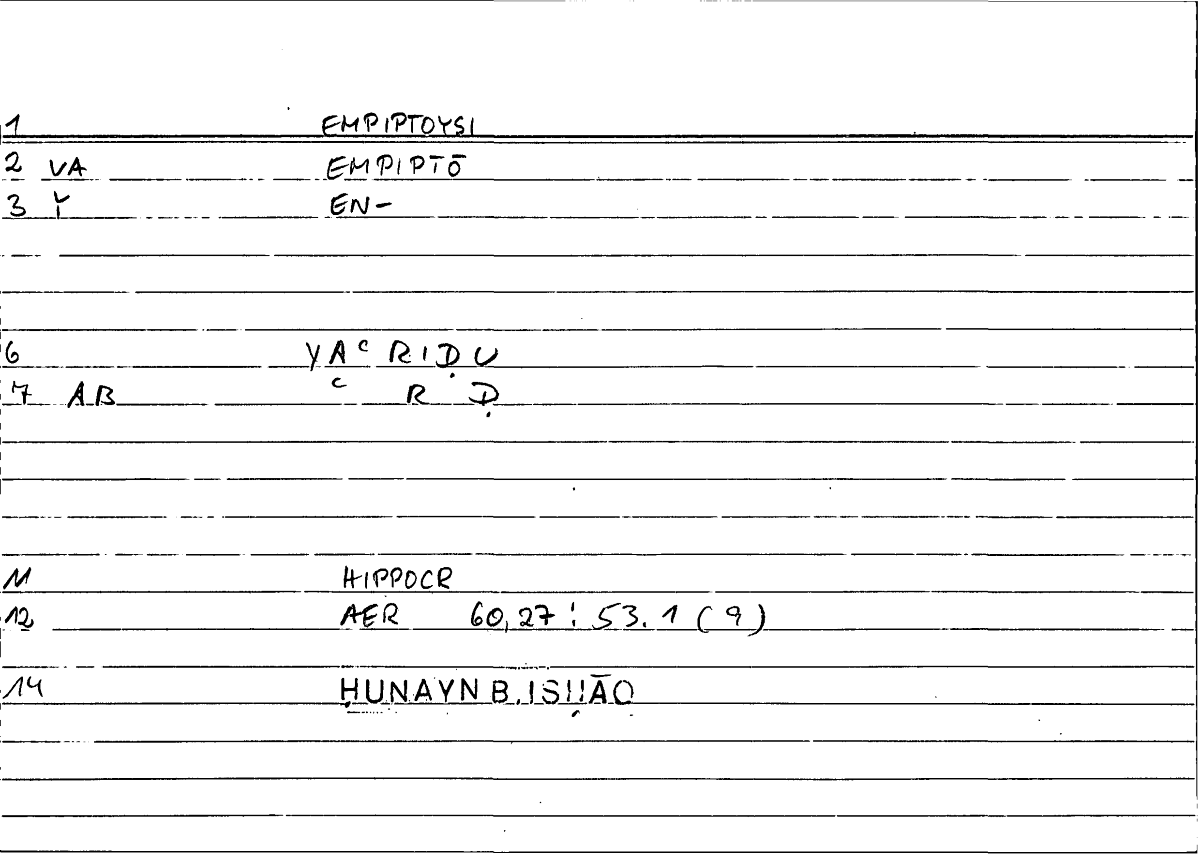 1 EMPIPTOYSI
2 VA EMPIPTŌ
3 Y EN-
6 YAᶜRIḌU
7 AB ᶜ R Ḍ
11 HIPPOCR
12 AER 60,27 : 53.1 (9)
14 ḤUNAYN B. ISḤĀQ